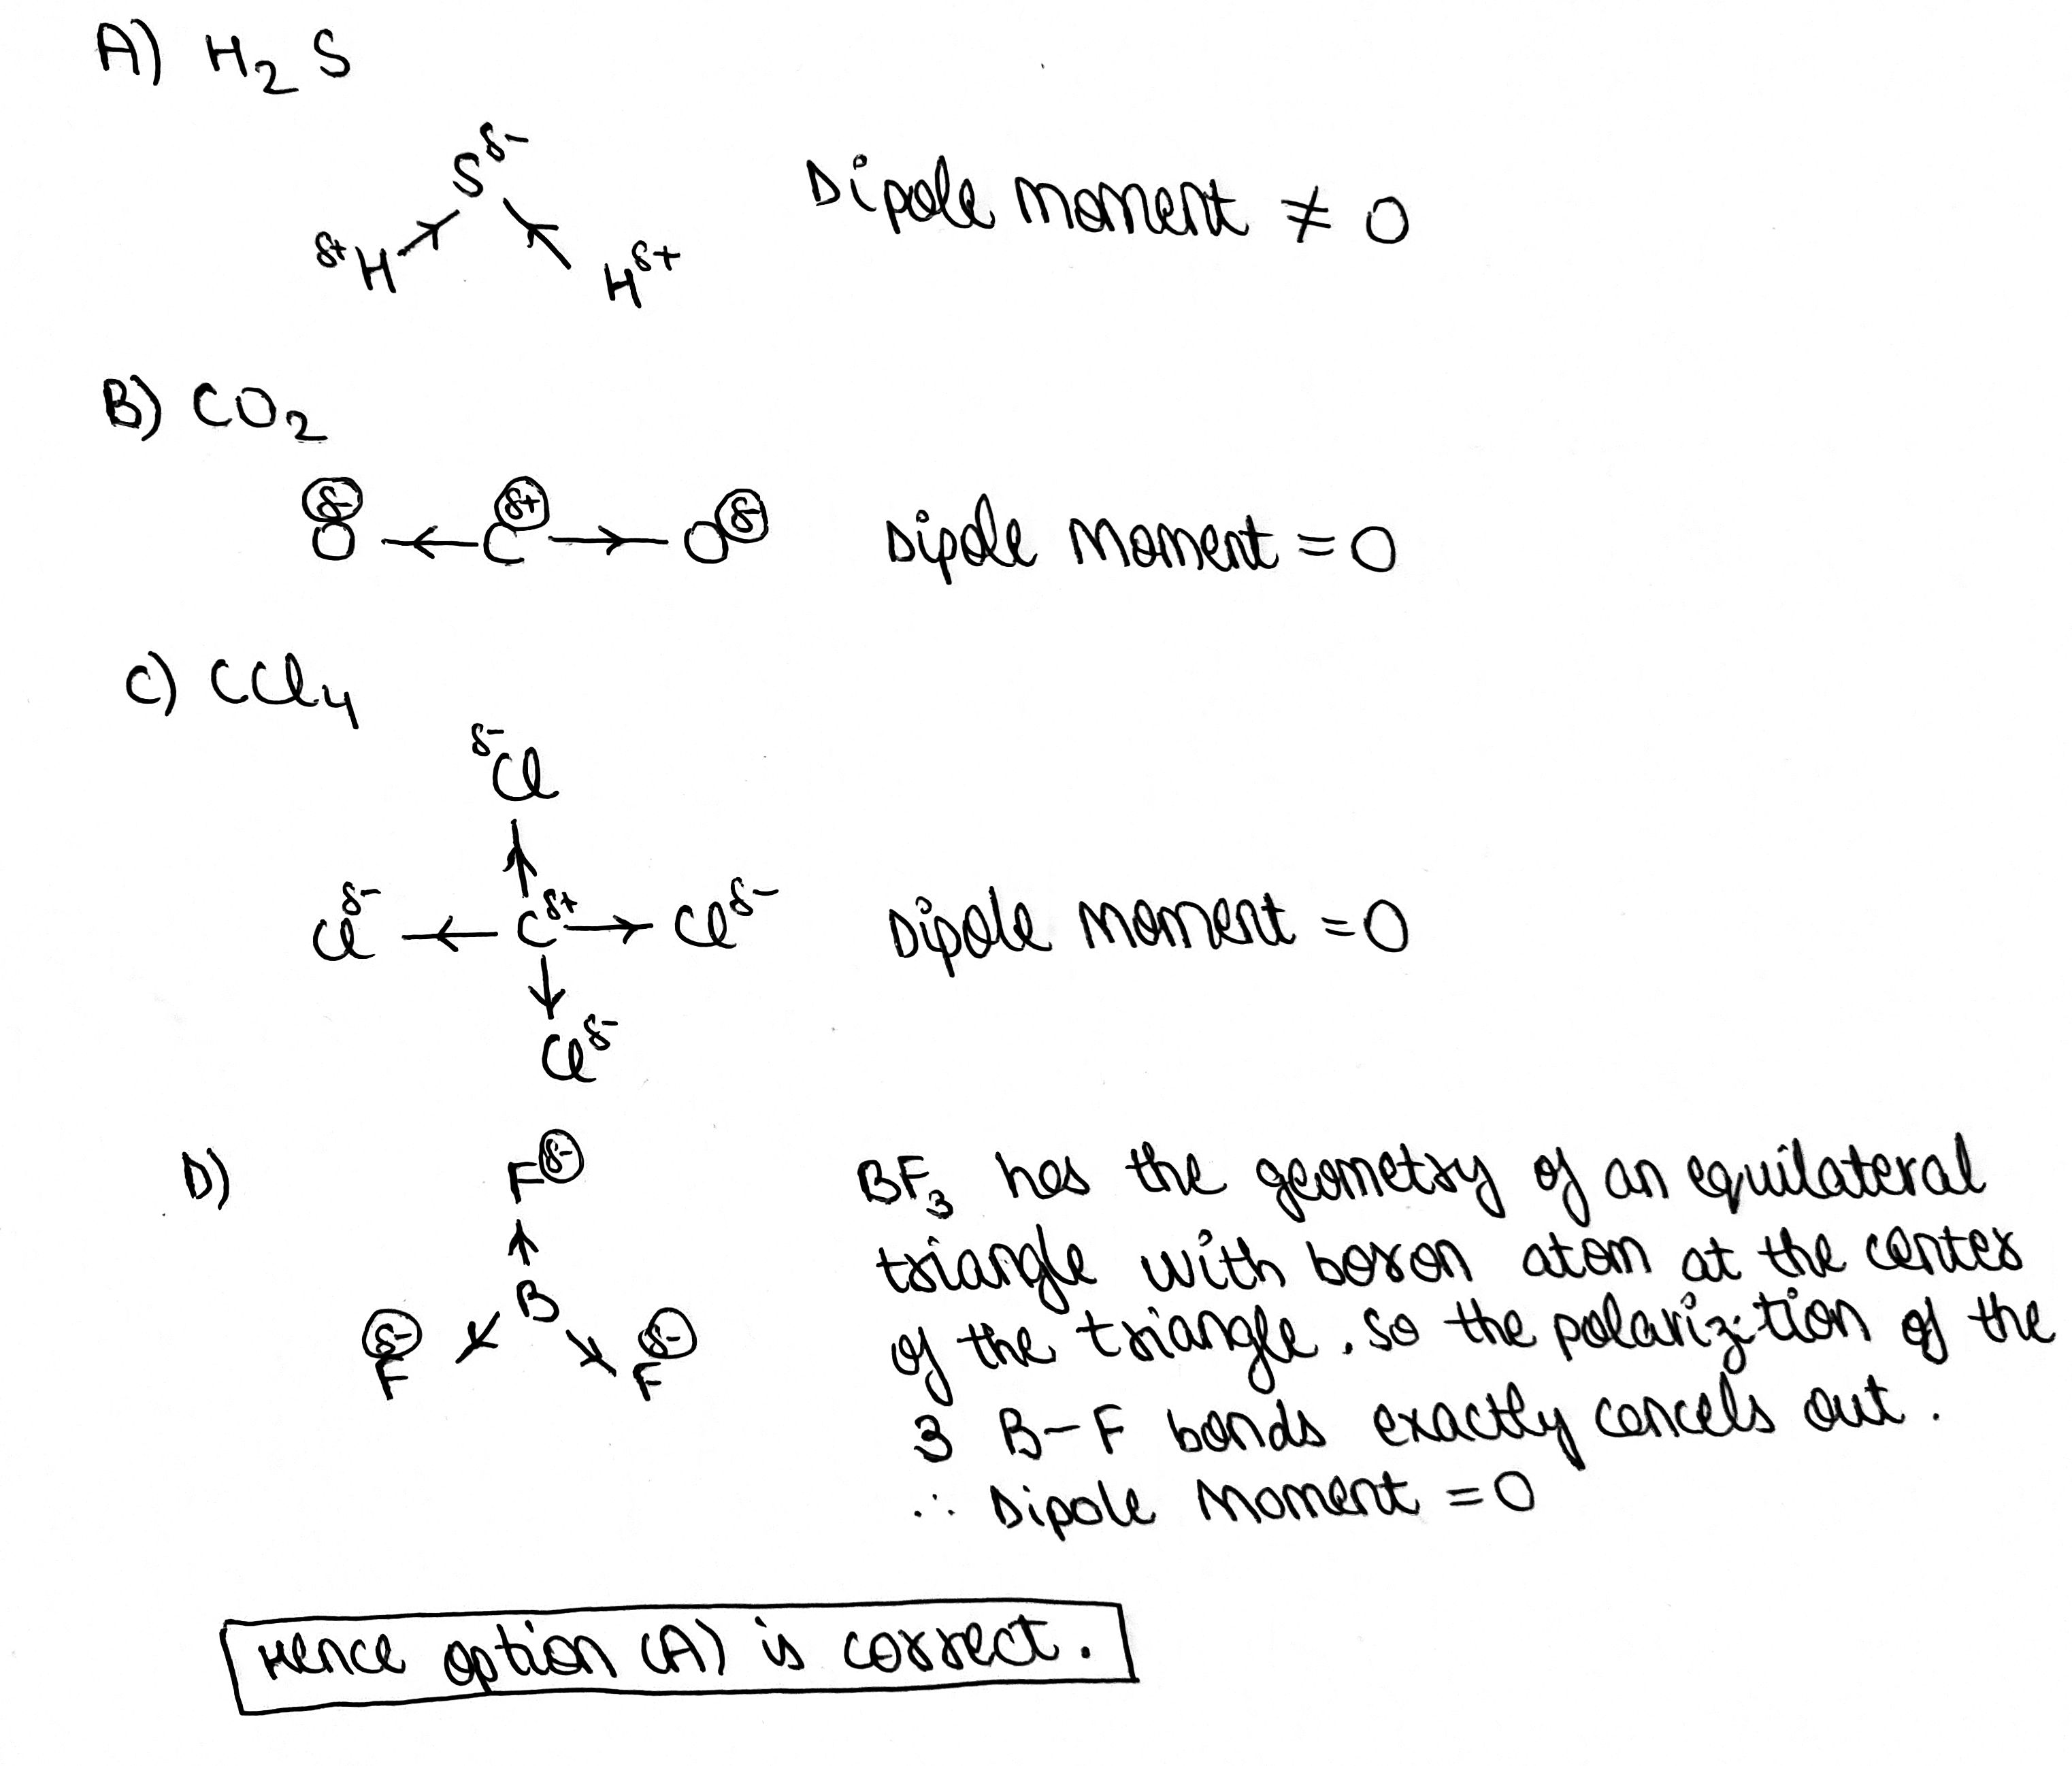 A) H₂S
S^δ-
Dipole moment ≠ 0
δ+H
H^δ+
B) CO₂
δ- δ+ δ-
O ← C → O
Dipole Moment = 0
C) CCl₄
δ-Cl
Cl^δ- ← C^δ+ → Cl^δ-
Dipole Moment = 0
Cl^δ-
D)
F^δ-
BF₃ has the geometry of an equilateral
triangle with boron atom at the center
B
of the triangle. so the polariz·tion of the
δ-F
F^δ-
3 B-F bonds exactly cancels out.
∴ Dipole Moment = 0
Hence option (A) is correct.